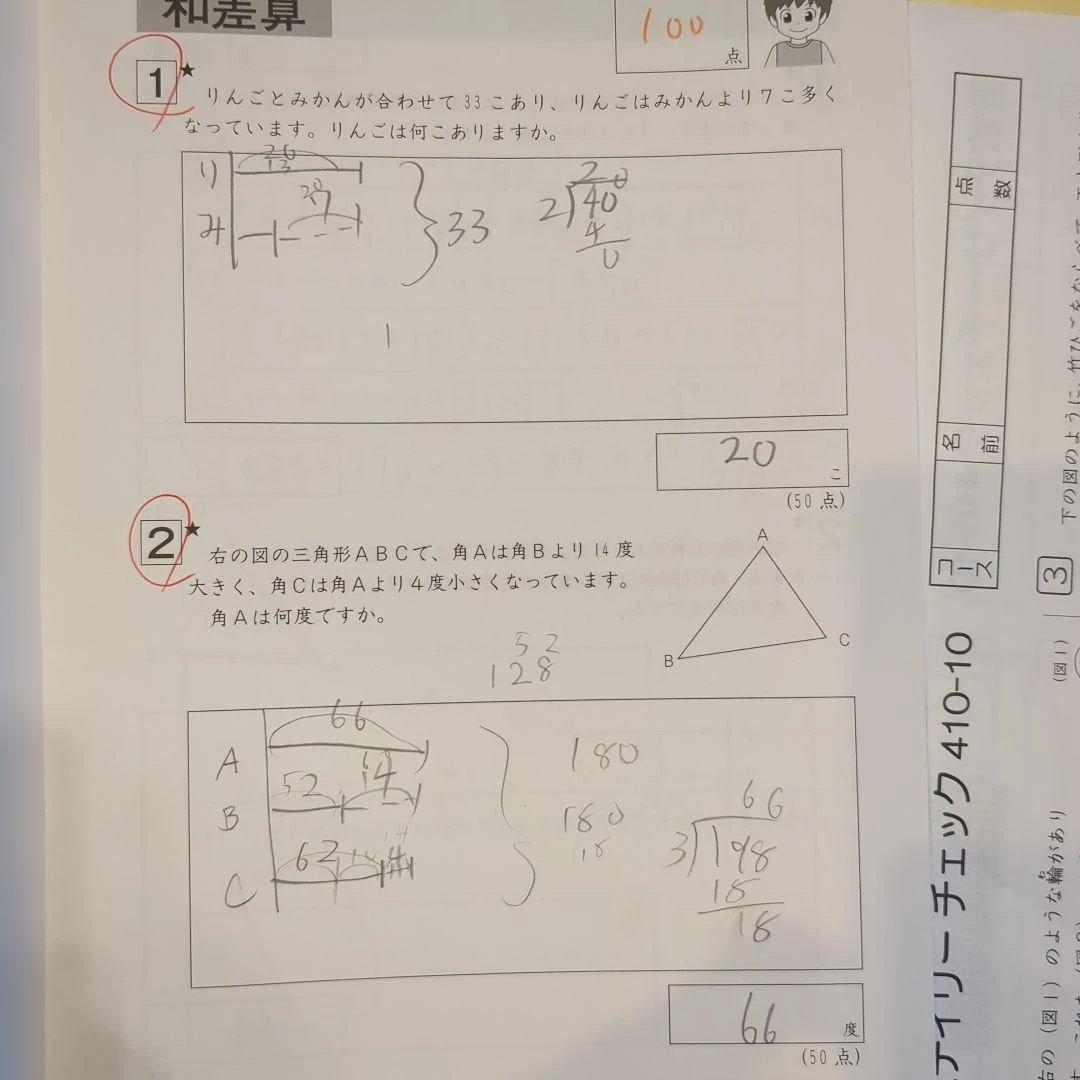 和差算
100
点
1
りんごとみかんが合わせて33こあり、りんごはみかんより7こ多く
なっています。りんごは何こありますか。
り
み
7
33
20
2)40
4
0
20
こ
(50点)
2
右の図の三角形ABCで、角Aは角Bより14度
大きく、角Cは角Aより4度小さくなっています。
角Aは何度ですか。
A
B
C
52
128
66
A
52
14
B
62
4
C
180
180
18
66
3)198
18
18
66
度
(50点)
点数
名前
コース
デイリーチェック410-10
3
下の図のように、竹ひごをならべて
(図1)
右の(図1)のような輪があり